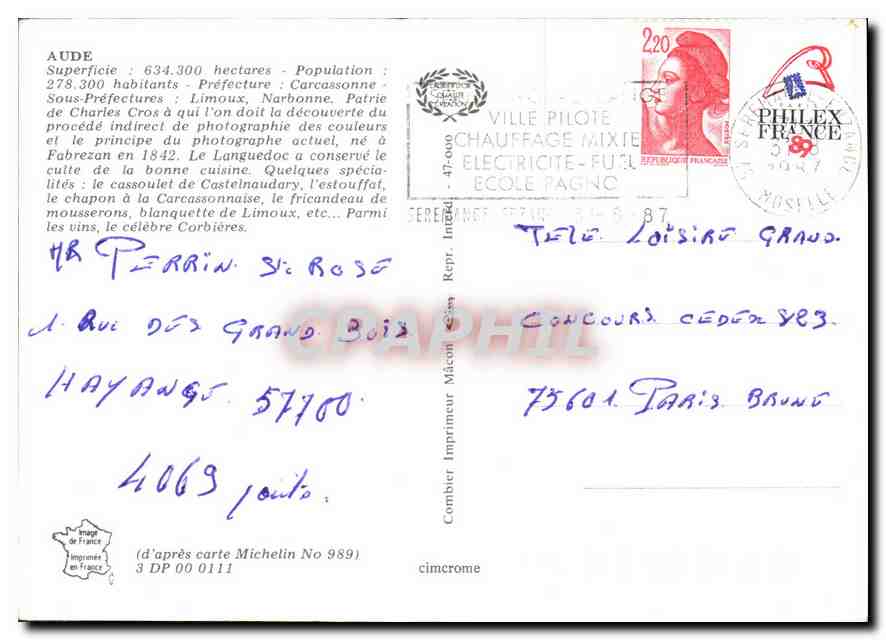 AUDE
Superficie : 634.300 hectares - Population :
278.300 habitants - Préfecture : Carcassonne -
Sous-Préfectures : Limoux, Narbonne. Patrie
de Charles Cros à qui l'on doit la découverte du
procédé indirect de photographie des couleurs
et le principe du photographe actuel, né à
Fabrezan en 1842. Le Languedoc a conservé le
culte de la bonne cuisine. Quelques spécia-
lités : le cassoulet de Castelnaudary, l'estouffat,
le chapon à la Carcassonnaise, le fricandeau de
mousserons, blanquette de Limoux, etc... Parmi
les vins, le célèbre Corbières.
MR PERRIN Ste ROSE
1. RUE DES GRAND BOIS
HAYANGE 57700
4069 points.
Image
de France
Imprimée
en France
(d'après carte Michelin No 989)
3 DP 00 0111
cimcrome
Combier Imprimeur Mâcon Cim Repr. Interdi - 47-000
VILLE PILOTE
CHAUFFAGE MIXTE
ELECTRICITE-FUEL
ECOLE PAGNO
SEREMANGE 87
2,20
REPUBLIQUE FRANÇAISE
PHILEX
FRANCE
'89
MOSELLE
TELE LOISIRE GRAND
CONCOURS CEDEX 823
75601 PARIS BRUNE
CPAPHIL